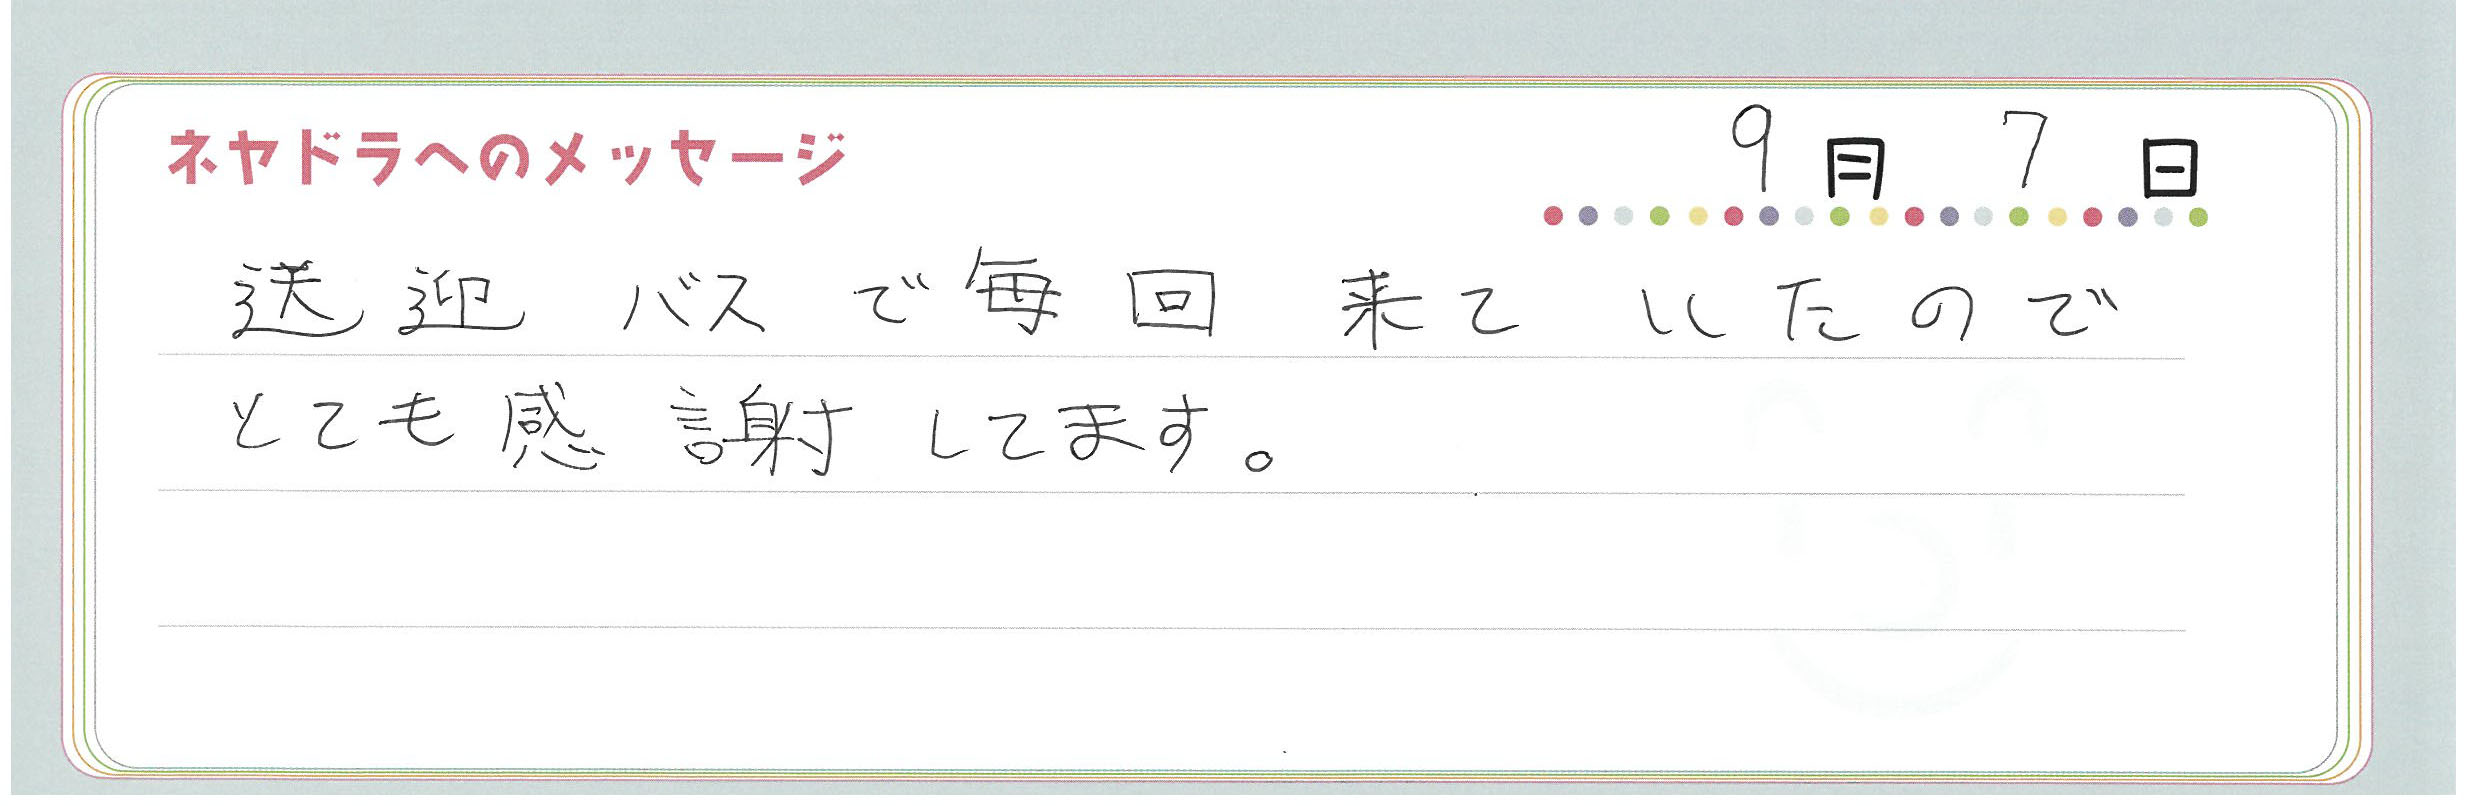 ネヤドラへのメッセージ
9月7日
送迎バスで毎回来ていたので
とても感謝してます。